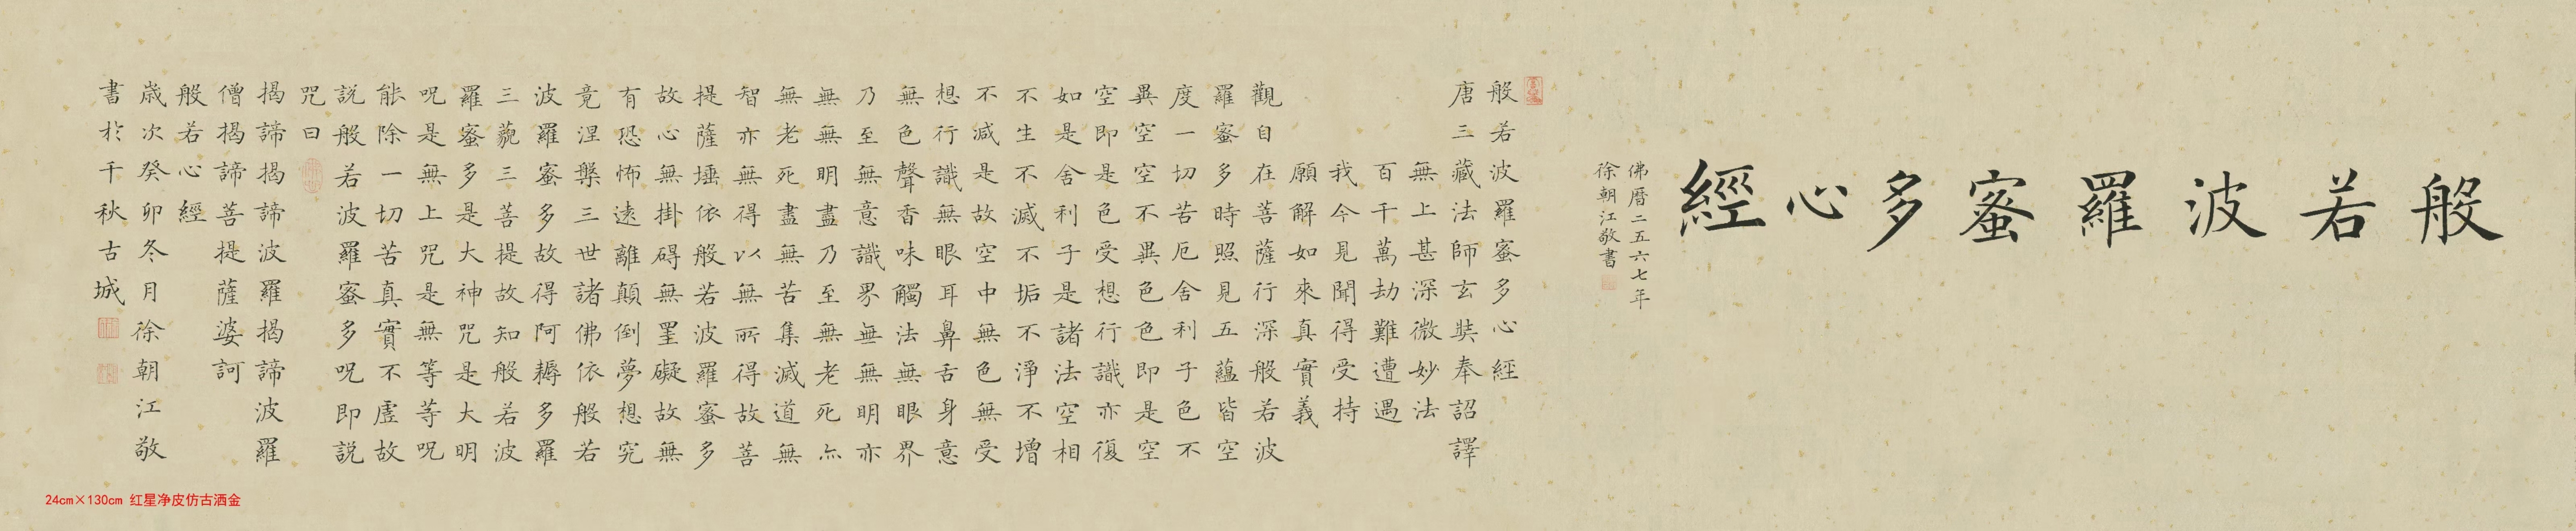 般若波羅蜜多心經
佛曆二五六七年
徐朝江敬書
般若波羅蜜多心經
唐三藏法師玄奘奉詔譯
無上甚深微妙法
百千萬劫難遭遇
我今見聞得受持
願解如來真實義
觀自在菩薩行深般若波
羅蜜多時照見五蘊皆空
度一切苦厄舍利子色不
異空空不異色色即是空
空即是色受想行識亦復
如是舍利子是諸法空相
不生不滅不垢不淨不增
不減是故空中無色無受
想行識無眼耳鼻舌身意
無色聲香味觸法無眼界
乃至無意識界無無明亦
無無明盡乃至無老死亦
無老死盡無苦集滅道無
智亦無得以無所得故菩
提薩埵依般若波羅蜜多
故心無掛碍無罣礙故無
有恐怖遠離顛倒夢想究
竟涅槃三世諸佛依般若
波羅蜜多故得阿耨多羅
三藐三菩提故知般若波
羅蜜多是大神呪是大明
呪是無上呪是無等等呪
能除一切苦真實不虛故
説般若波羅蜜多呪即説
咒曰
揭諦揭諦波羅揭諦波羅
僧揭諦菩提薩婆訶
般若心經
歲次癸卯冬月徐朝江敬
書於千秋古城
24cm×130cm 红星净皮仿古洒金